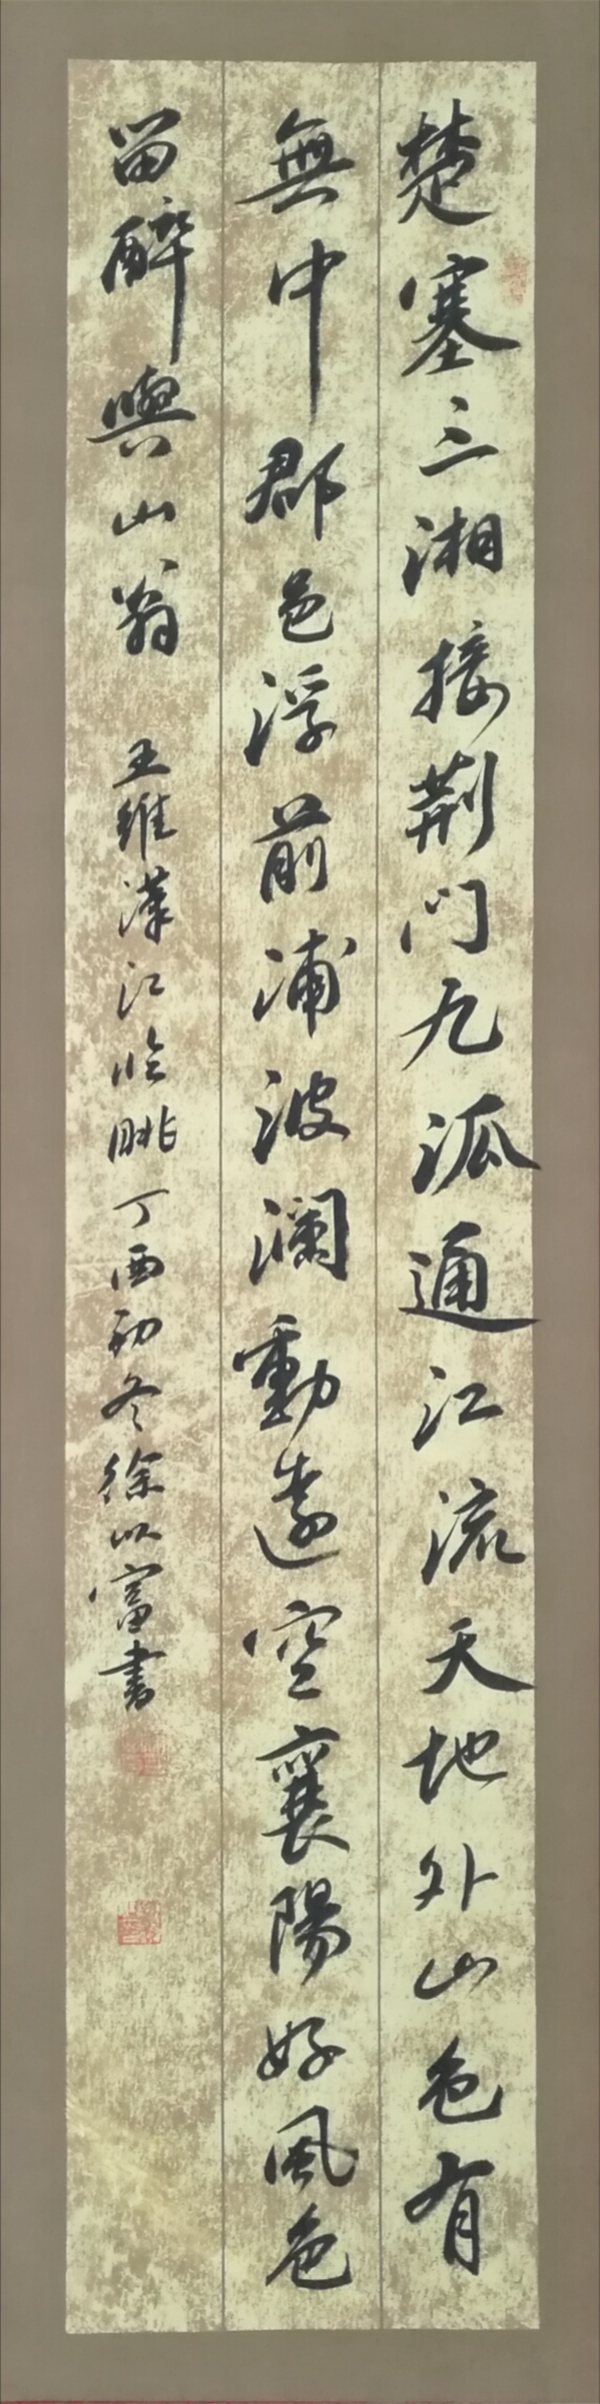 楚塞三湘接荆门九派通江流天地外山色有
無中郡邑浮前浦波瀾動遠空襄陽好風色
留醉與山翁 王維漢江临眺丁酉初冬徐以富書